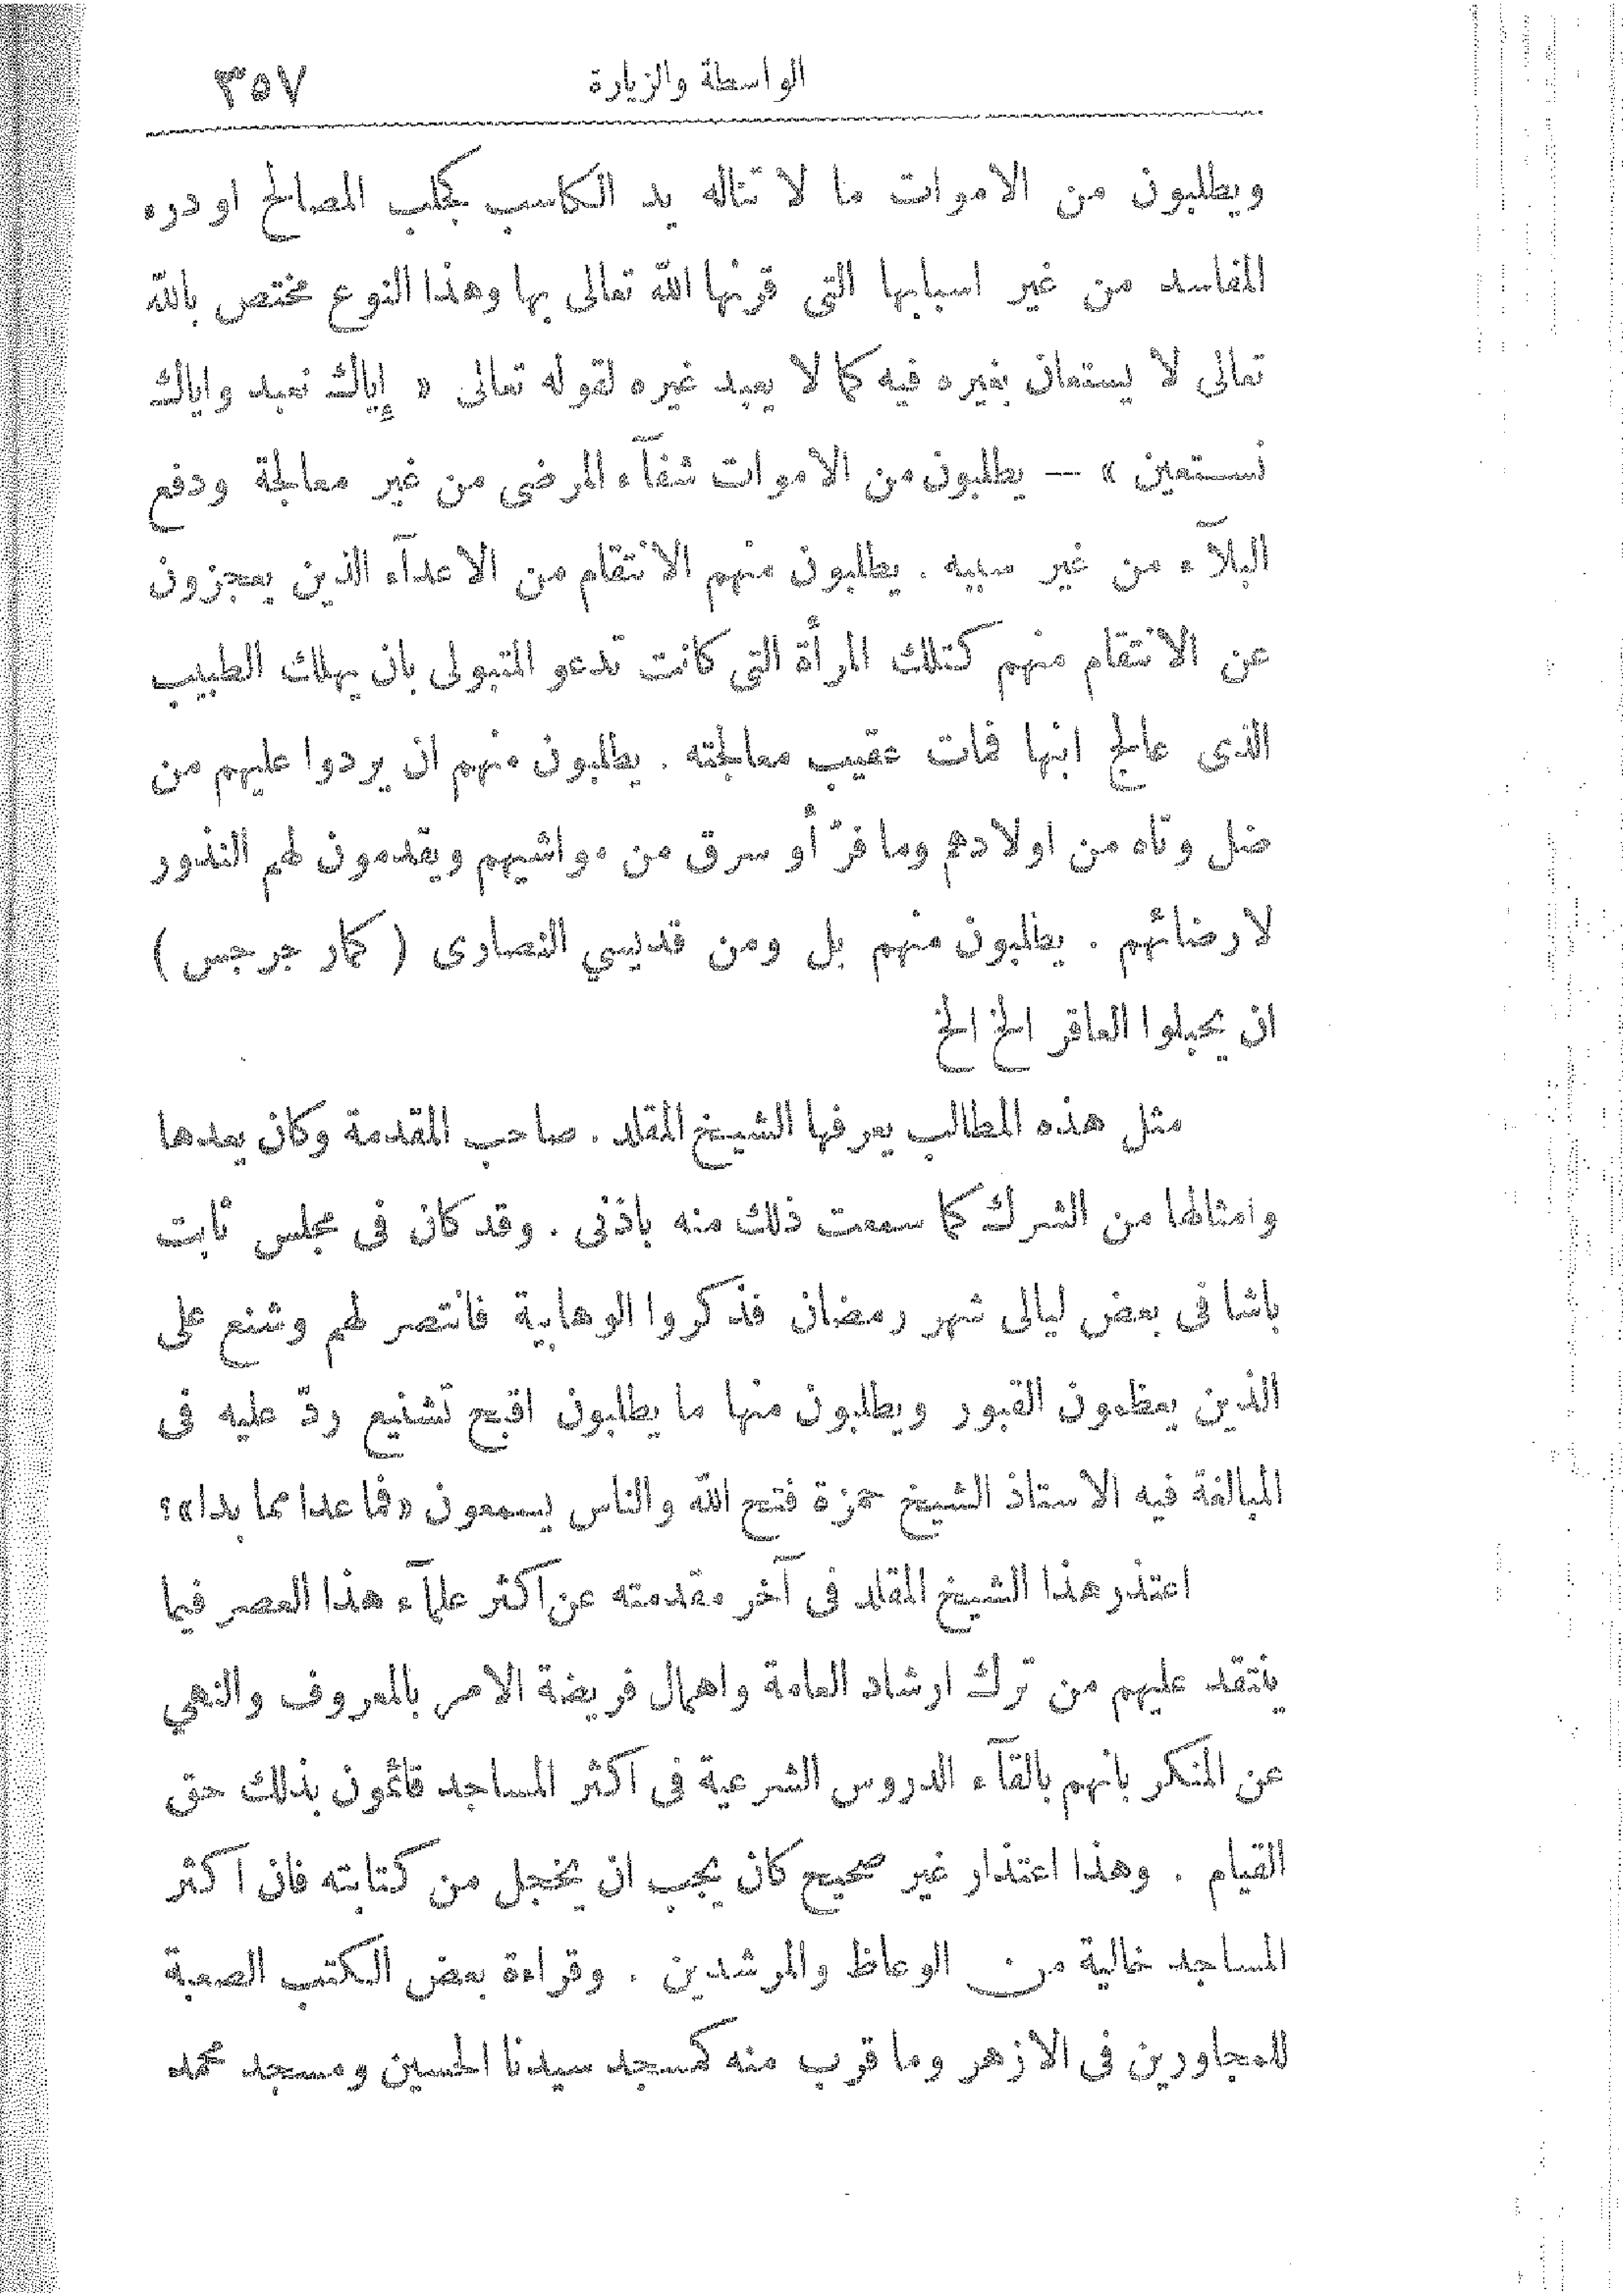 الواسطة والزيارة ٣٥٧
ويطلبون من الاموات ما لا تناله يد الكاسب بجلب المصالح او درء
المفاسد من غير اسبابها التى قرنها الله تعالى بها وهذا النوع مختص بالله
تعالى لا يستعان بغيره فيه كما لا يعبد غيره لقوله تعالى « إياك نعبد واياك
نستعين » — يطلبون من الاموات شفآء المرضى من غير معالجة ودفع
البلآء من غير سببه . يطلبون منهم الانتقام من الاعدآء الذين يعجزون
عن الانتقام منهم كتلك المرأة التى كانت تدعو المتبولى بان يهلك الطبيب
الذى عالج ابنها فمات عقيب معالجته . يطلبون منهم ان يردوا عليهم من
ضل وتاه من اولادهم وما فرّ أو سرق من مواشيهم ويقدمون لهم النذور
لارضائهم . يطلبون منهم بل ومن قديسي النصارى ( كمار جرجس )
ان يحبلوا العاقر الخ الخ
مثل هذه المطالب يعرفها الشيخ المقلد . صاحب المقدمة وكان يعدها
وامثالها من الشرك كما سمعت ذلك منه باذنى . وقد كان فى مجلس ثابت
باشا فى بعض ليالى شهر رمضان فذكروا الوهابية فانتصر لهم وشنع على
الذين يعظمون القبور ويطلبون منها ما يطلبون اقبح تشنيع ردّ عليه فى
المبالغة فيه الاستاذ الشيخ حمزة فتح الله والناس يسمعون «فما عدا مما بدا»؟
اعتذر هذا الشيخ المقلد فى آخر مقدمته عن اكثر علمآء هذا العصر فيما
ينتقد عليهم من ترك ارشاد العامة واهمال فريضة الامر بالمعروف والنهي
عن المنكر بانهم بالقآء الدروس الشرعية فى اكثر المساجد قائمون بذلك حق
القيام . وهذا اعتذار غير صحيح كان يجب ان يخجل من كتابته فان اكثر
المساجد خالية من الوعاظ والمرشدين . وقراءة بعض الكتب الصعبة
للمجاورين فى الازهر وما قرب منه كمسجد سيدنا الحسين ومسجد محمد